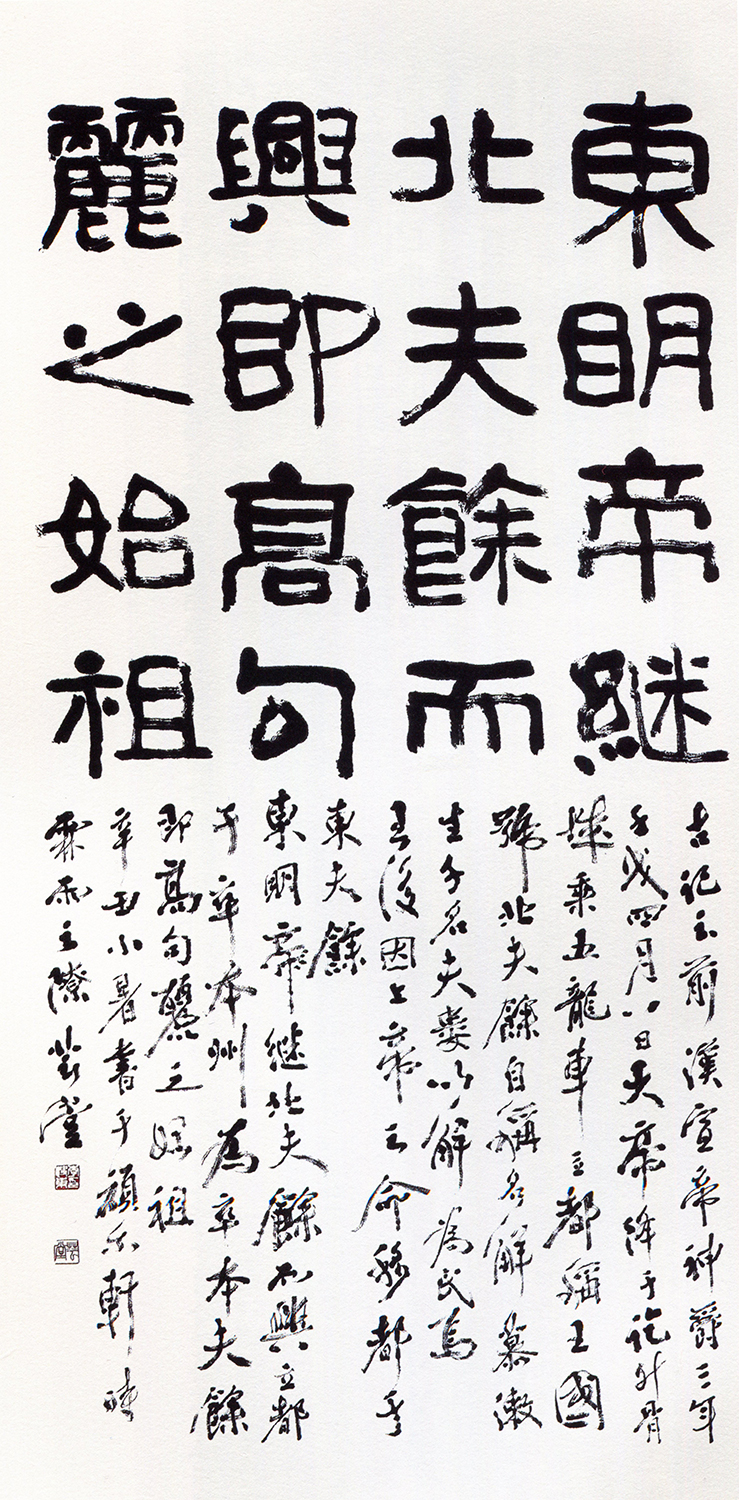 東明帝継
北夫餘而
興即高句
麗之始祖
古記云前漢宣帝神爵三年
壬戌四月八日天帝降于訖升骨
城乘五龍車立都稱王國
號北夫餘自稱名解慕漱
生子名夫婁以解為氏焉
王後因上帝之命移都于
東夫餘
東明帝継北夫餘而興立都
于卒本州為卒本夫餘
即高句麗之始祖
辛丑小暑書于軒
霖雨之際堂